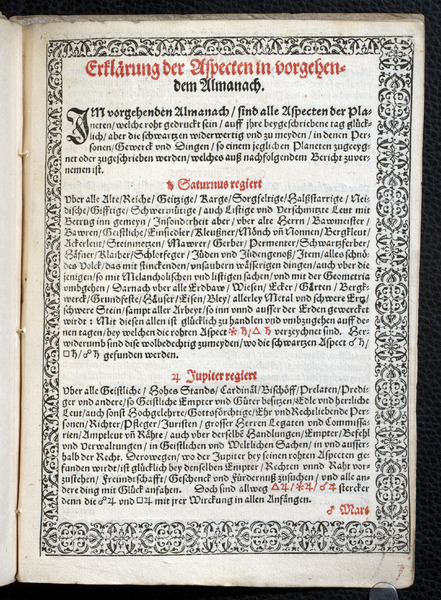 Erklärung der Aspecten in vorgehen-
dem Almanach.
IM vorgehenden Almanach / sind alle Aspecten der Pla-
neten / welche roht gedruckt sein / auff jhre beygeschriebene tag glück-
lich / aber die schwartzen widerwertig vnd zu meyden / in denen Per-
sonen / Gewerck vnd Dingen / so einem jeglichen Planeten zugeeyg-
net oder zugeschrieben werden / welches auß nachfolgendem Bericht zuver-
nemen ist.
♄ Saturnus regiert
Vber alle Alte / Reiche / Geitzige / Karge / Sorgfeltige / Halßstarrige / Nei-
dische / Gifftige / Schwermütige / auch Listige vnd Verschmitzte Leut mit
Betrug inn gemeyn / Jnsonderheit aber / vber alte Herrn / Bawmeister /
Bawren / Geistliche / Einsiedler / Kleußner / Mönch vnd Nonnen / Bergkleut /
Ackerleut / Steinmetzen / Mawrer / Gerber / Permenter / Schwartzferber /
Häfner / Klaiber / Schlotfeger / Jüden vnd Jüdengenoß / Jtem / alles schnö-
des Volck / das mit stinckenden / vnsaubern wässerigen dingen / auch vber die
jenigen / so mit Melancholischen vnd listigen sachen / vnd mit der Geometria
vmbgehen / Darnach vber alle Erdbaw / Wiesen / Ecker / Gärten / Bergk-
werck / Grundfeste / Häuser / Eisen / Bley / allerley Metal vnd schwere Ertz /
schwere Stein / sampt aller Arbeyt / so inn vnnd ausser der Erden gewerckt
wirdt: Mit diesen allen ist glücklich zu handlen vnd vmbzugehen auff de-
nen tagen / bey welchen die rohten Aspect ✶♄ / △♄ verzeychnet sind. Her-
widerumb sind dise wolbedechtig zumeyden / wo die schwartzen Aspect ☌♄ /
□♄ / ☍♄ gefunden werden.
♃ Jupiter regiert
Vber alle Geistliche / Hohes Stands / Cardinäl / Bischöff / Prelaten / Predi-
ger vnd andere / so Geistliche Empter vnd Güter besitzen / Edle vnd herrliche
Leut / auch sonst Hochgelehrte / Gottsförchtige / Ehr vnd Rechtliebende Per-
sonen / Richter / Pfleger / Juristen / grosser Herren Legaten vnd Commissa-
rien / Amptleut vnd Rähte / auch vber derselbē Handlungen / Empter / Befehl
vnd Verwaltungen / in Geistlichen vnd Weltlichen Sachen / in vnnd ausser-
halb der Recht. Derowegen / wo der Jupiter bey seinen rohten Aspecten ge-
funden wirdt / ist glücklich bey denselben Empter / Rechten vnnd Raht vor-
zustehen / Freundtschafft / Geschenck vnd Fürdernuß zusuchen / vnd alle an-
dere ding mit Glück anfahen. Doch sind allweg △♃ / ✶♃ / ☌♃ stercker
denn die ☍♃ vnd □♃ mit jrer Wirckung in allen Anfängen.
♂ Mars